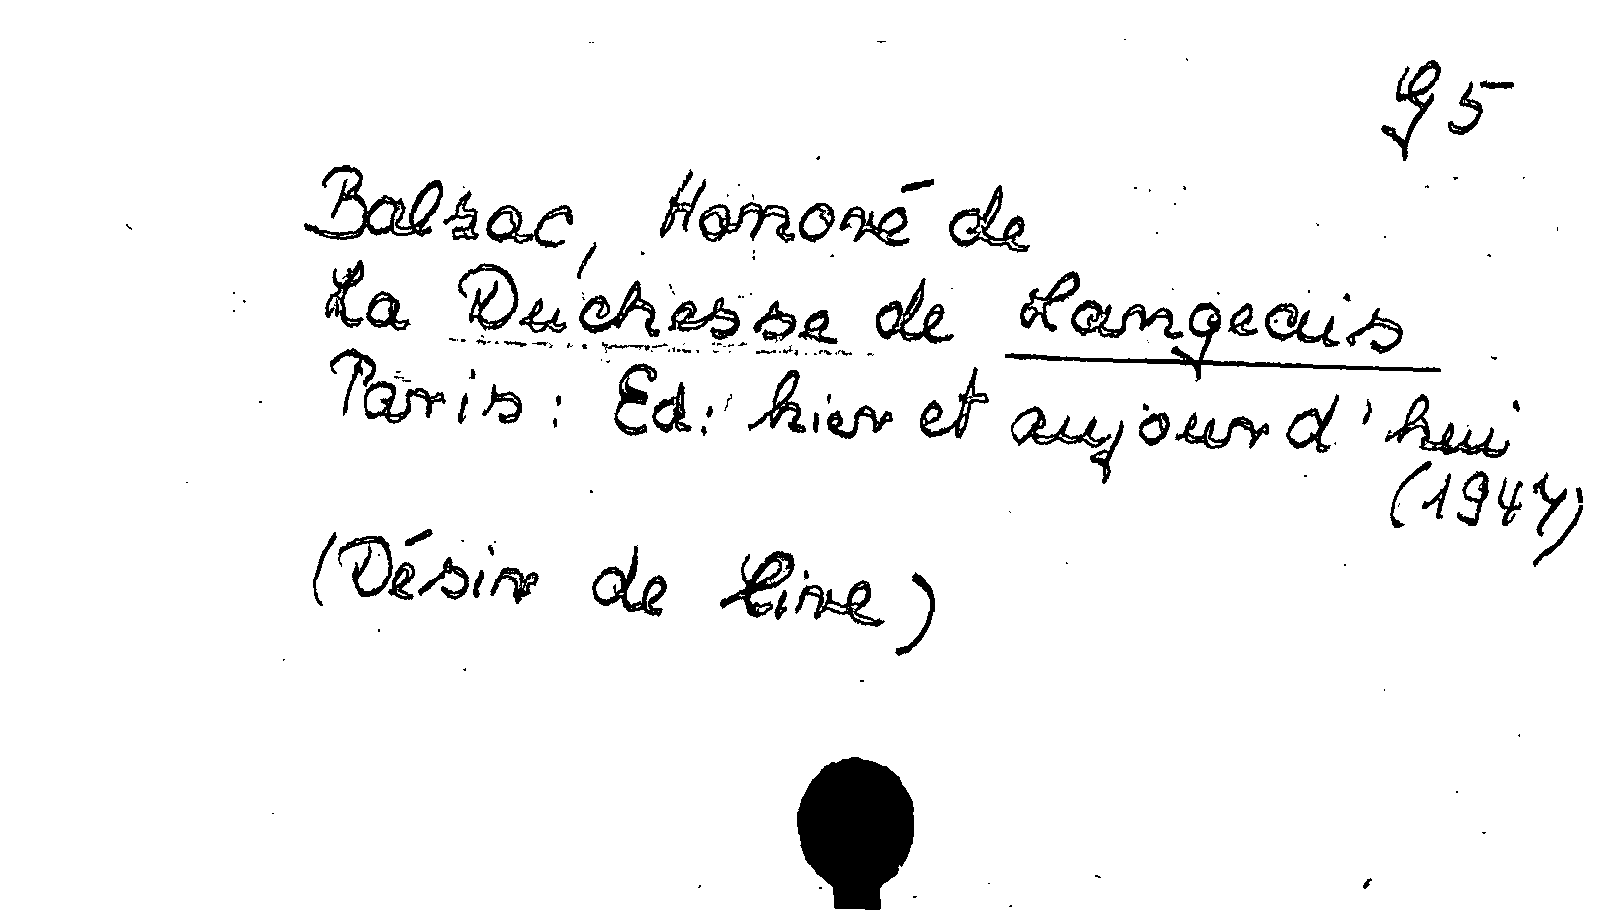 G5
Balzac, Honoré de
La Duchesse de Langeais
Paris: Ed: hier et aujourd'hui
(1947)
(Désir de Lire)